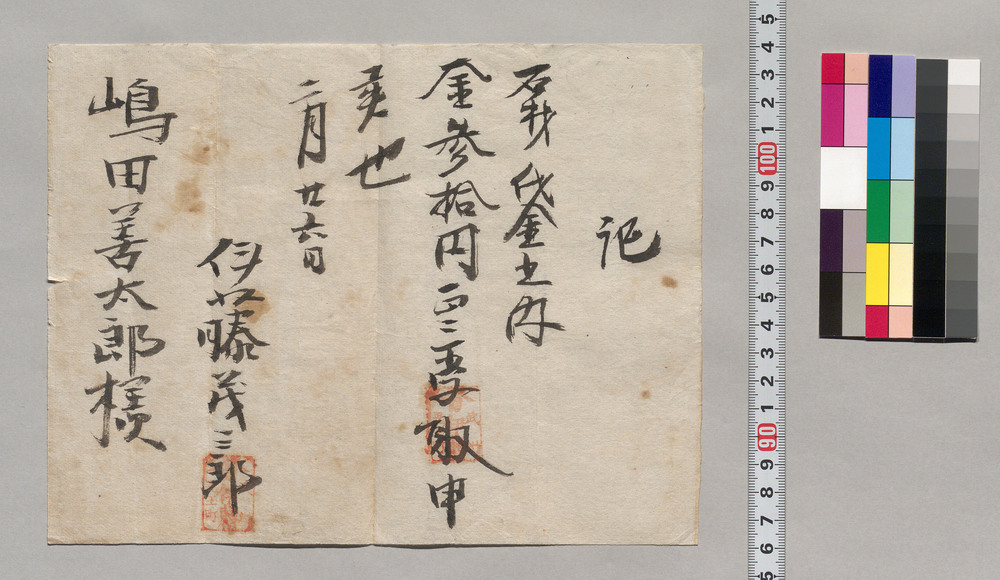 記
代金之内
金参拾円正ニ受取申
候也
二月廿六日
伊藤茂三郎
嶋田善太郎様
5
4
3
2
1
100
9
8
7
6
5
4
3
2
1
90
9
8
7
6
5